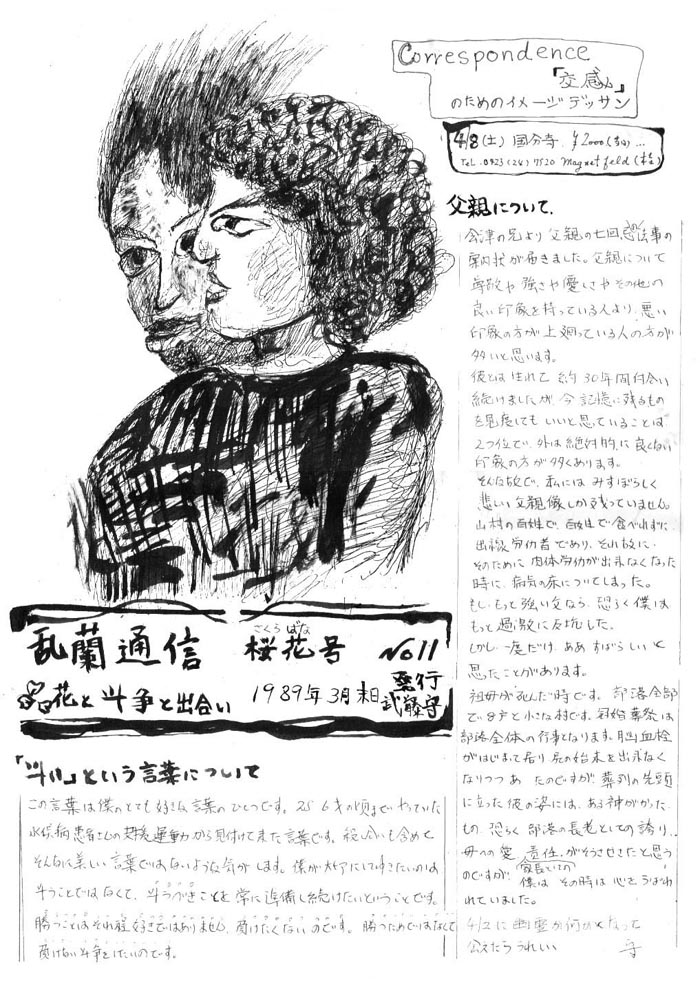 Correspondence
「交感」
のためのイメージデッサン
4/8(土) 国分寺 ¥2000
TEL.0423(24)7520 Magnet feld
父親について
会津の兄より父親の七回忌法事の
案内状が届きました。父親について
尊敬や強さや優しさやその他の
良い印象を持っている人より、悪い
印象の方が上廻っている人の方が
多いと思います。
彼とは生れて約30年間付合い
続けましたが、今記憶に残るもの
を見渡してもいいと思っていることは
2つ位で、外は絶対的に良くない
印象の方が多くあります。
そんな訳で、私にはみすぼらしく
悲しい父親像しか残っていません。
山村の百姓で、百姓で食べれずに
出稼労仂者であり、それ故に、
そのために肉体労仂が出来なくなった
時に、病気の床についてしまった。
もし、もっと強い父なら、恐らく僕は
もっと過激に反抗した。
しかし一度だけ、ああすばらしいと
思たことがあります。
祖母が死んだ時です。部落全部
で8戸と小さな村です。冠婚葬祭は
部落全体の行事となります。脳血栓
がはじまって居り尿の始末も出来なく
なりつつあったのですが、葬列の先頭
に立った彼の姿には、ある神がかった
もの、恐らく部落の長老としての誇り、
母への愛、家長としての責任、がそうさせたと思う
のですが、僕はその時は心をうばわ
れていました。
4/2に幽霊か何かとなって
会えたらうれしい 守
乱蘭通信 桜花号 No11
さくらばな
花と斗争と出合い 1989年3月末日 発行 武藤守
「斗い」という言葉について
この言葉は僕のとても好きな言葉のひとつです。25、6才の頃までやっていた
水俣病患者さんの支援運動から見付けて来た言葉です。殺し合いも含めて
そんなに美しい言葉ではないような気がします。僕が大切にして行きたいのは
斗うことではなくて、斗うべきことを常に準備し続けたいということです。
勝つことはそれ程好きではありません、負けたくないのです。勝つためではなくて
負けない斗争をしたいのです。